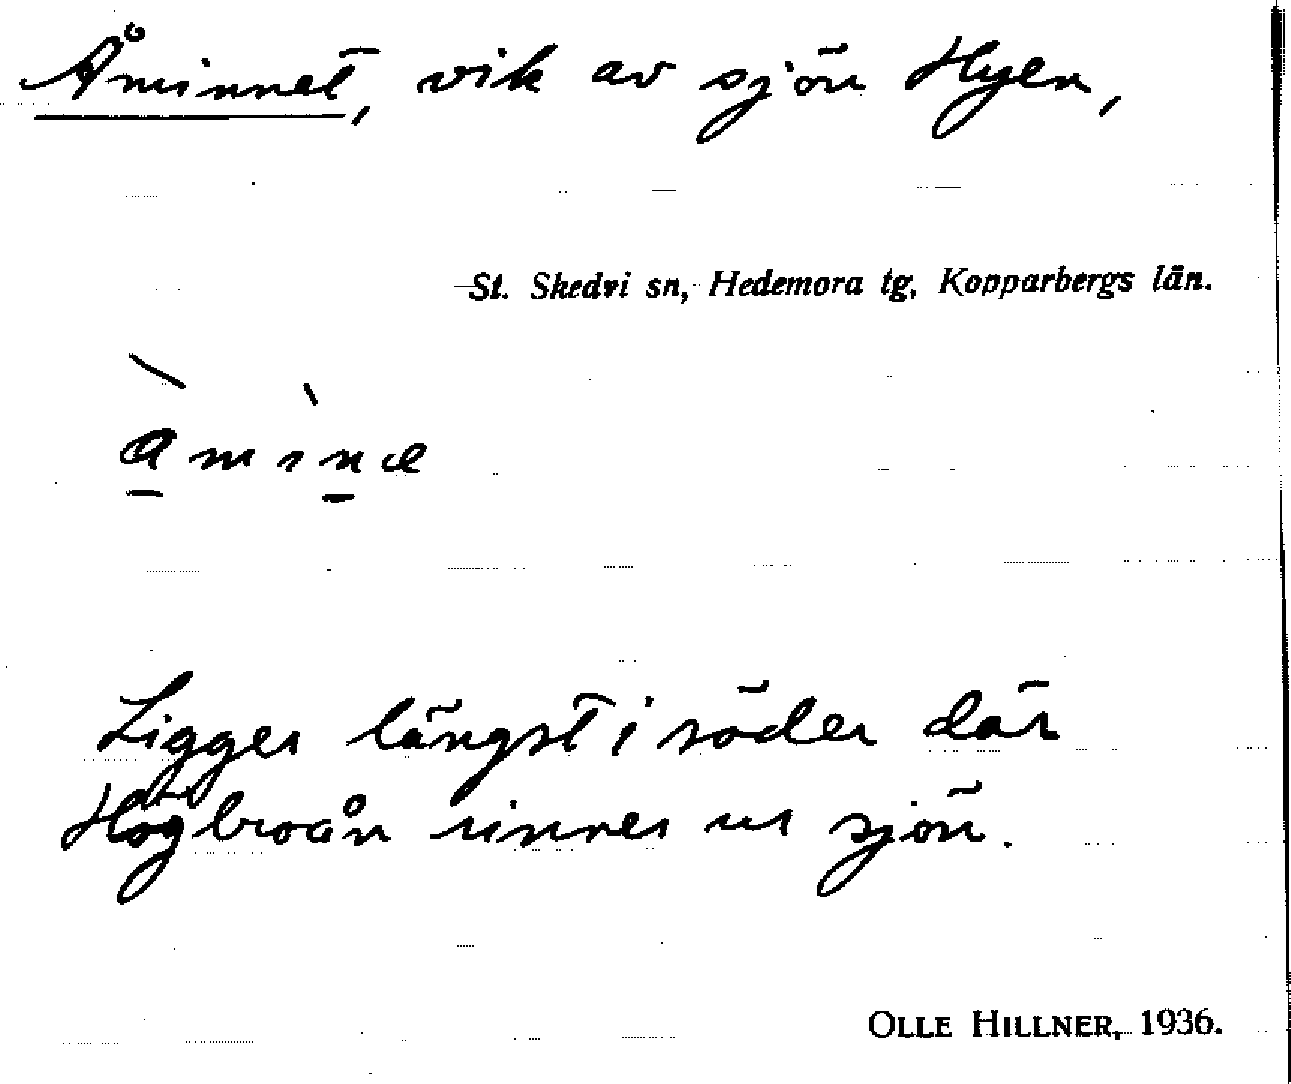 Åminnet, vik av sjön Hyen,
St. Skedvi sn, Hedemora tg, Kopparbergs län.
Ligger längst i söder där
Högbroån rinner ur sjön.
OLLE HILLNER, 1936.